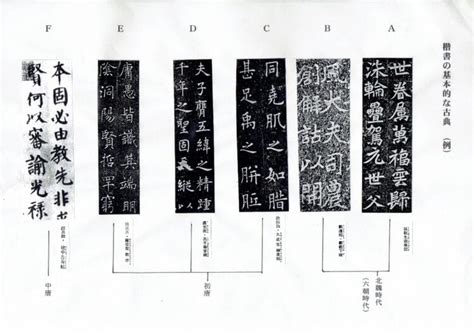 楷書の基本的な古典 (例)
A
世眷属萬福雲歸
洙輪疊駕元世父
B
風大夫司農
創解詁以開
C
同堯肌之如腊
甚足禹之胼胝
D
夫子膺五緯之精踵
千年之聖固天縱以
E
庸愚皆識其端明
陰洞陽賢哲罕窮
F
本固必由教先非求
賢何以審諭光祿
北魏時代
(六朝時代)
初唐
中唐